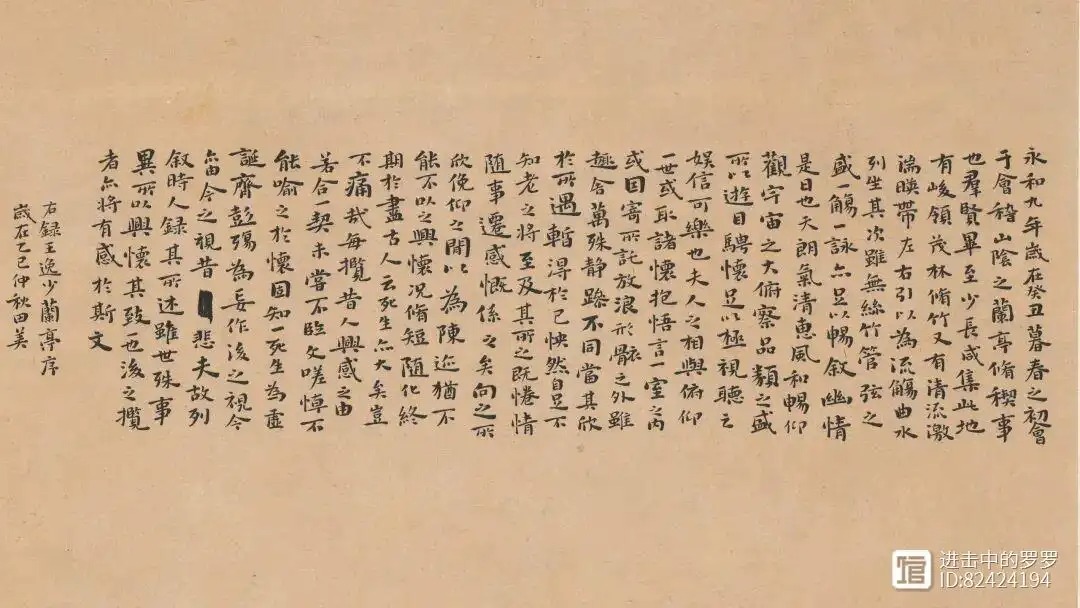 永和九年歲在癸丑暮春之初會
于會稽山陰之蘭亭脩稧事
也羣賢畢至少長咸集此地
有峻領茂林脩竹又有清流激
湍暎帶左右引以為流觴曲水
列坐其次雖無絲竹管弦之
盛一觴一詠亦足以暢敘幽情
是日也天朗氣清惠風和暢仰
觀宇宙之大俯察品類之盛
所以遊目騁懷足以極視聽之
娛信可樂也夫人之相與俯仰
一世或取諸懷抱悟言一室之內
或因寄所託放浪形骸之外雖
趣舍萬殊静躁不同當其欣
於所遇暫得於己怏然自足不
知老之將至及其所之既惓情
随事遷感慨係之矣向之所
欣俛仰之閒以為陳迹猶不
能不以之興懷况脩短随化終
期於盡古人云死生亦大矣豈
不痛哉每攬昔人興感之由
若合一契未嘗不臨文嗟悼不
能喻之於懷固知一死生為虛
誕齊彭殤為妄作後之視今
亦由今之視昔悲夫故列
敘時人録其所述雖世殊事
異所以興懷其致也後之攬
者亦將有感於斯文
右録王逸少蘭亭序
歲在乙巳仲秋田美
進击中的罗罗
ID:82424194